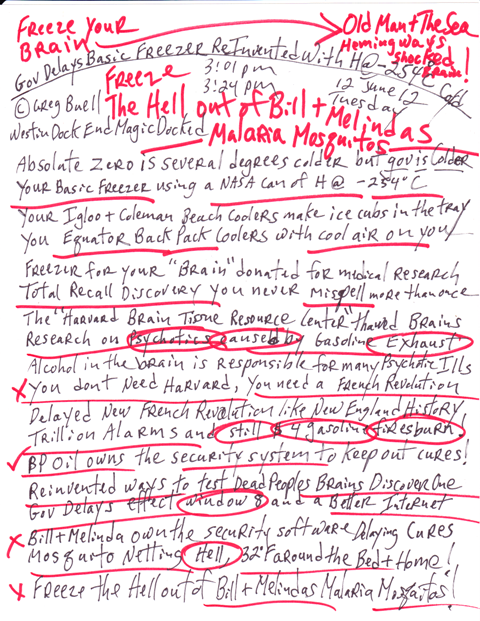 Freeze Your Brain → Old Man + The Sea
Hemingways shocked Brain!
Gov Delays Basic Freezer ReInvented With H@ -254°C Cold
Freeze 3:01 pm 3:24 pm 12 June 12 Tuesday
The Hell out of Bill + Melindas
© Greg Buell
Westin Dock End Magic Docked Malaria Mosquitos
Absolute Zero is several degrees colder but gov is Colder
Your Basic Freezer using a NASA can of H @ -254°C
Your Igloo + Coleman Beach Coolers make ice cubs in the tray
You Equator Back Pack Coolers with cool air on you
Freezer for your "Brain" donated for medical Research
Total Recall Discovery you never misspell more than once
The "Harvard Brain Tissue Resource Center" thawed Brains
Research on Psychotics caused by Gasoline Exhaust
Alcohol in the brain is responsible for many Psychotic Ills
x You dont Need Harvard, You need a French Revolution
Delayed New French Revolution like New England History
Trillion Alarms and still $4 gasoline fires burn!
✓ BP Oil owns the security system to keep out cures!
Reinvented ways to test Dead Peoples Brains Discover One
Gov Delays effect window 8 and a Better Internet
x Bill + Melinda own the security software Delaying Cures
Mosquito Netting Hell, 32°F around the Bed + Home!
x Freeze the Hell out of Bill + Melindas Malaria Mosquitos!